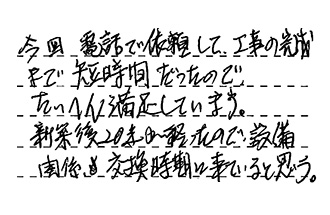 今回 電話で依頼して、工事の完成
まで 短時間だったので
たいへん満足しています。
新築後20年の経ったので設備
関係も交換時期に来ていると思う。